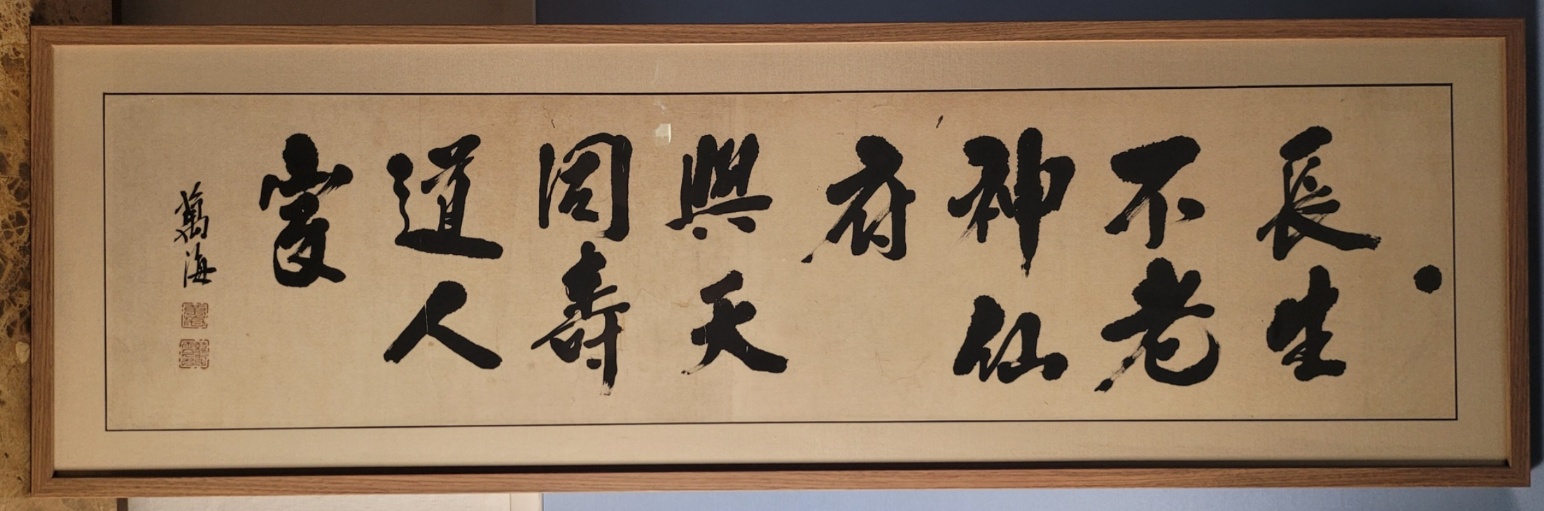 長生
不老
神仙
府
與天
同壽
道人
家
萬海